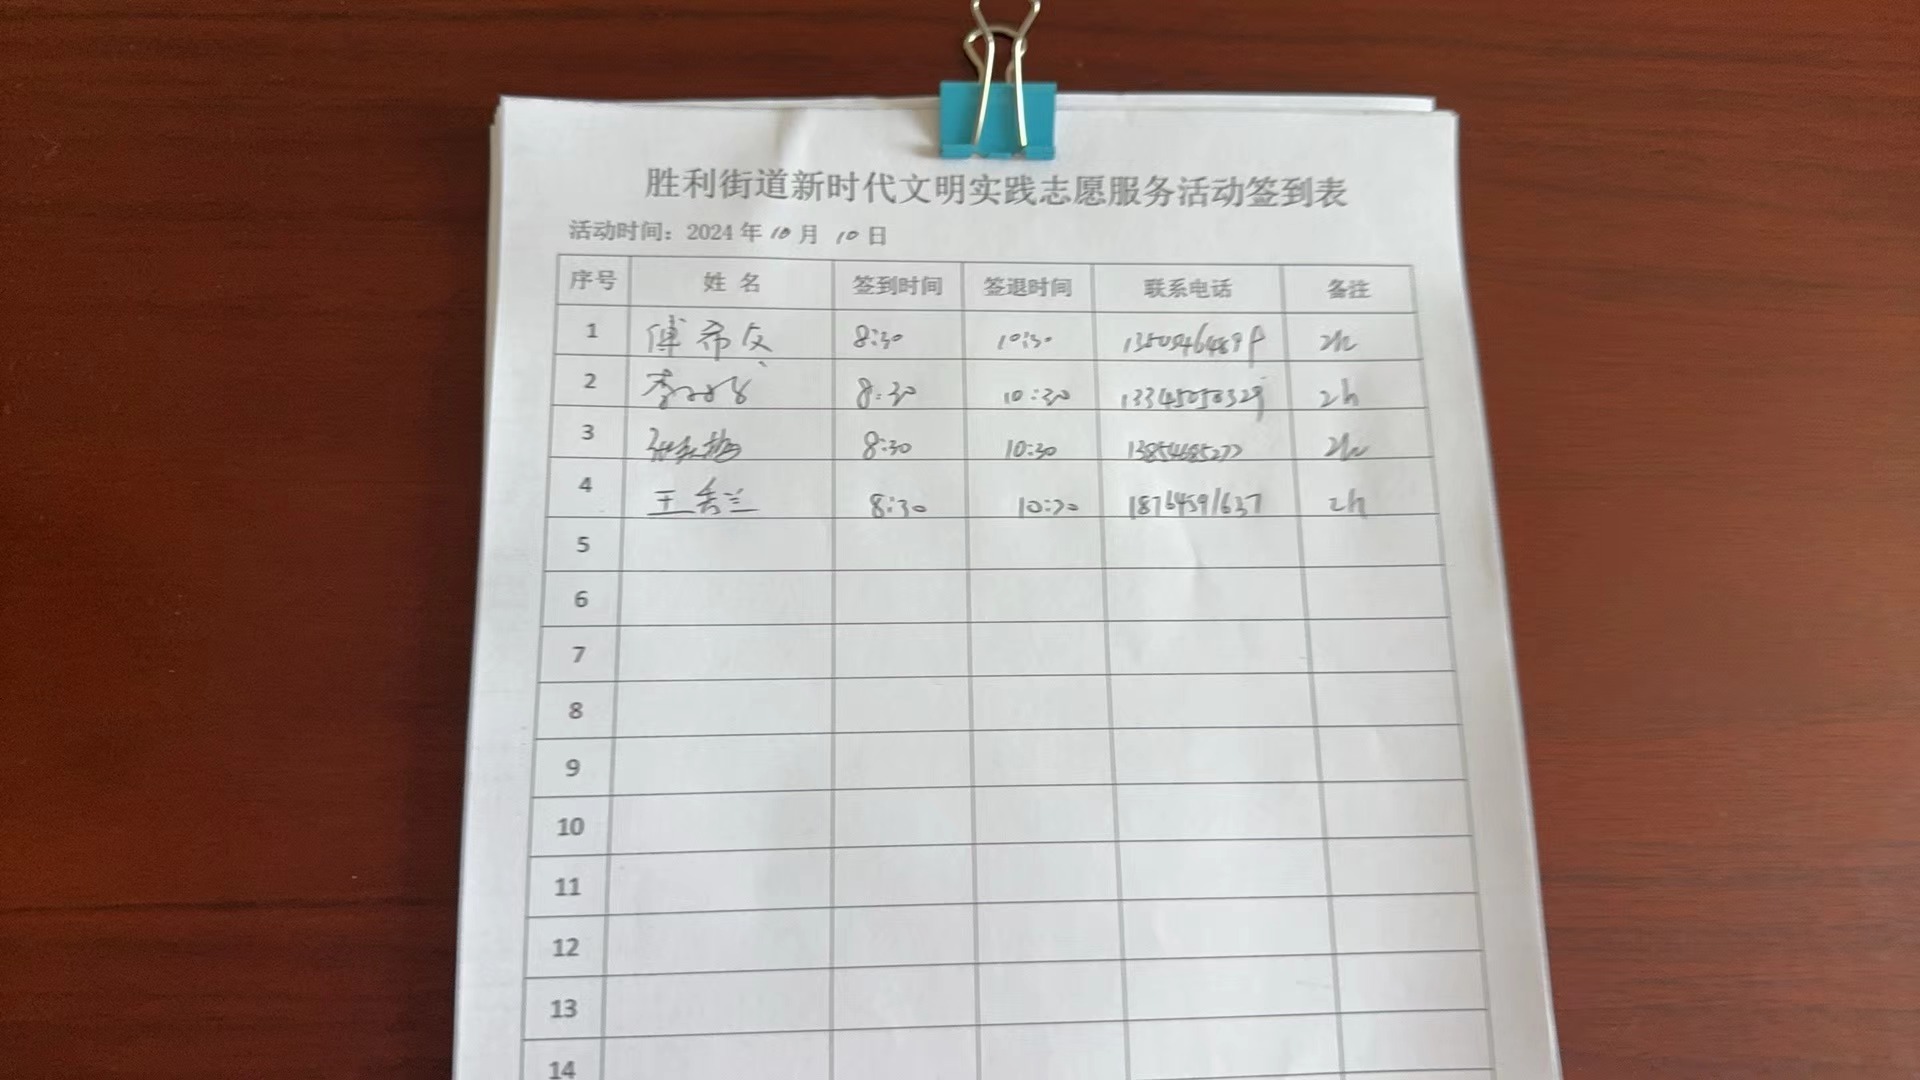 胜利街道新时代文明实践志愿服务活动签到表
活动时间：2024 年 10 月 10 日
序号 姓 名 签到时间 签退时间 联系电话 备注
1 傅希文 8:30 10:30 2h
2 李 8:30 10:30 13345050329 2h
3 8:30 10:30 2h
4 王秀兰 8:30 10:30 18764591637 2h
5
6
7
8
9
10
11
12
13
14